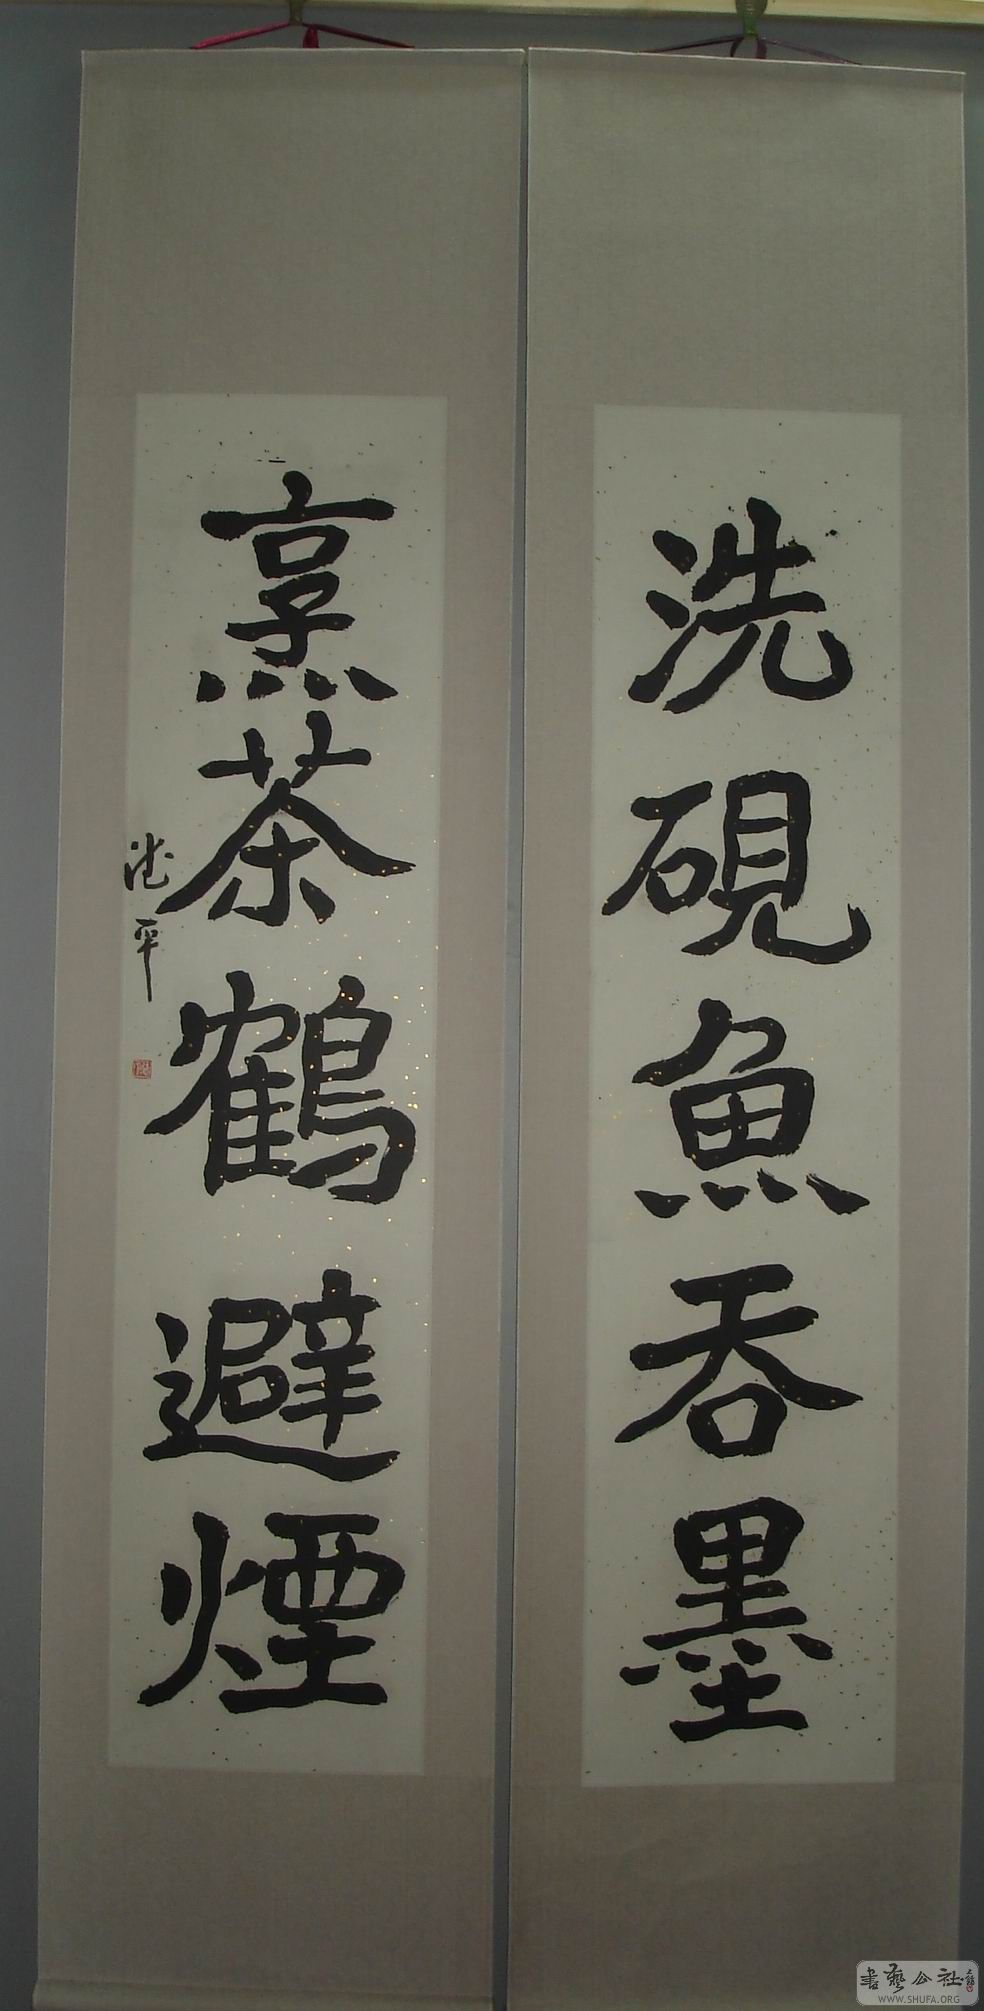 洗硯魚吞墨
烹茶鶴避煙
書藝公社
WWW.SHUFA.ORG